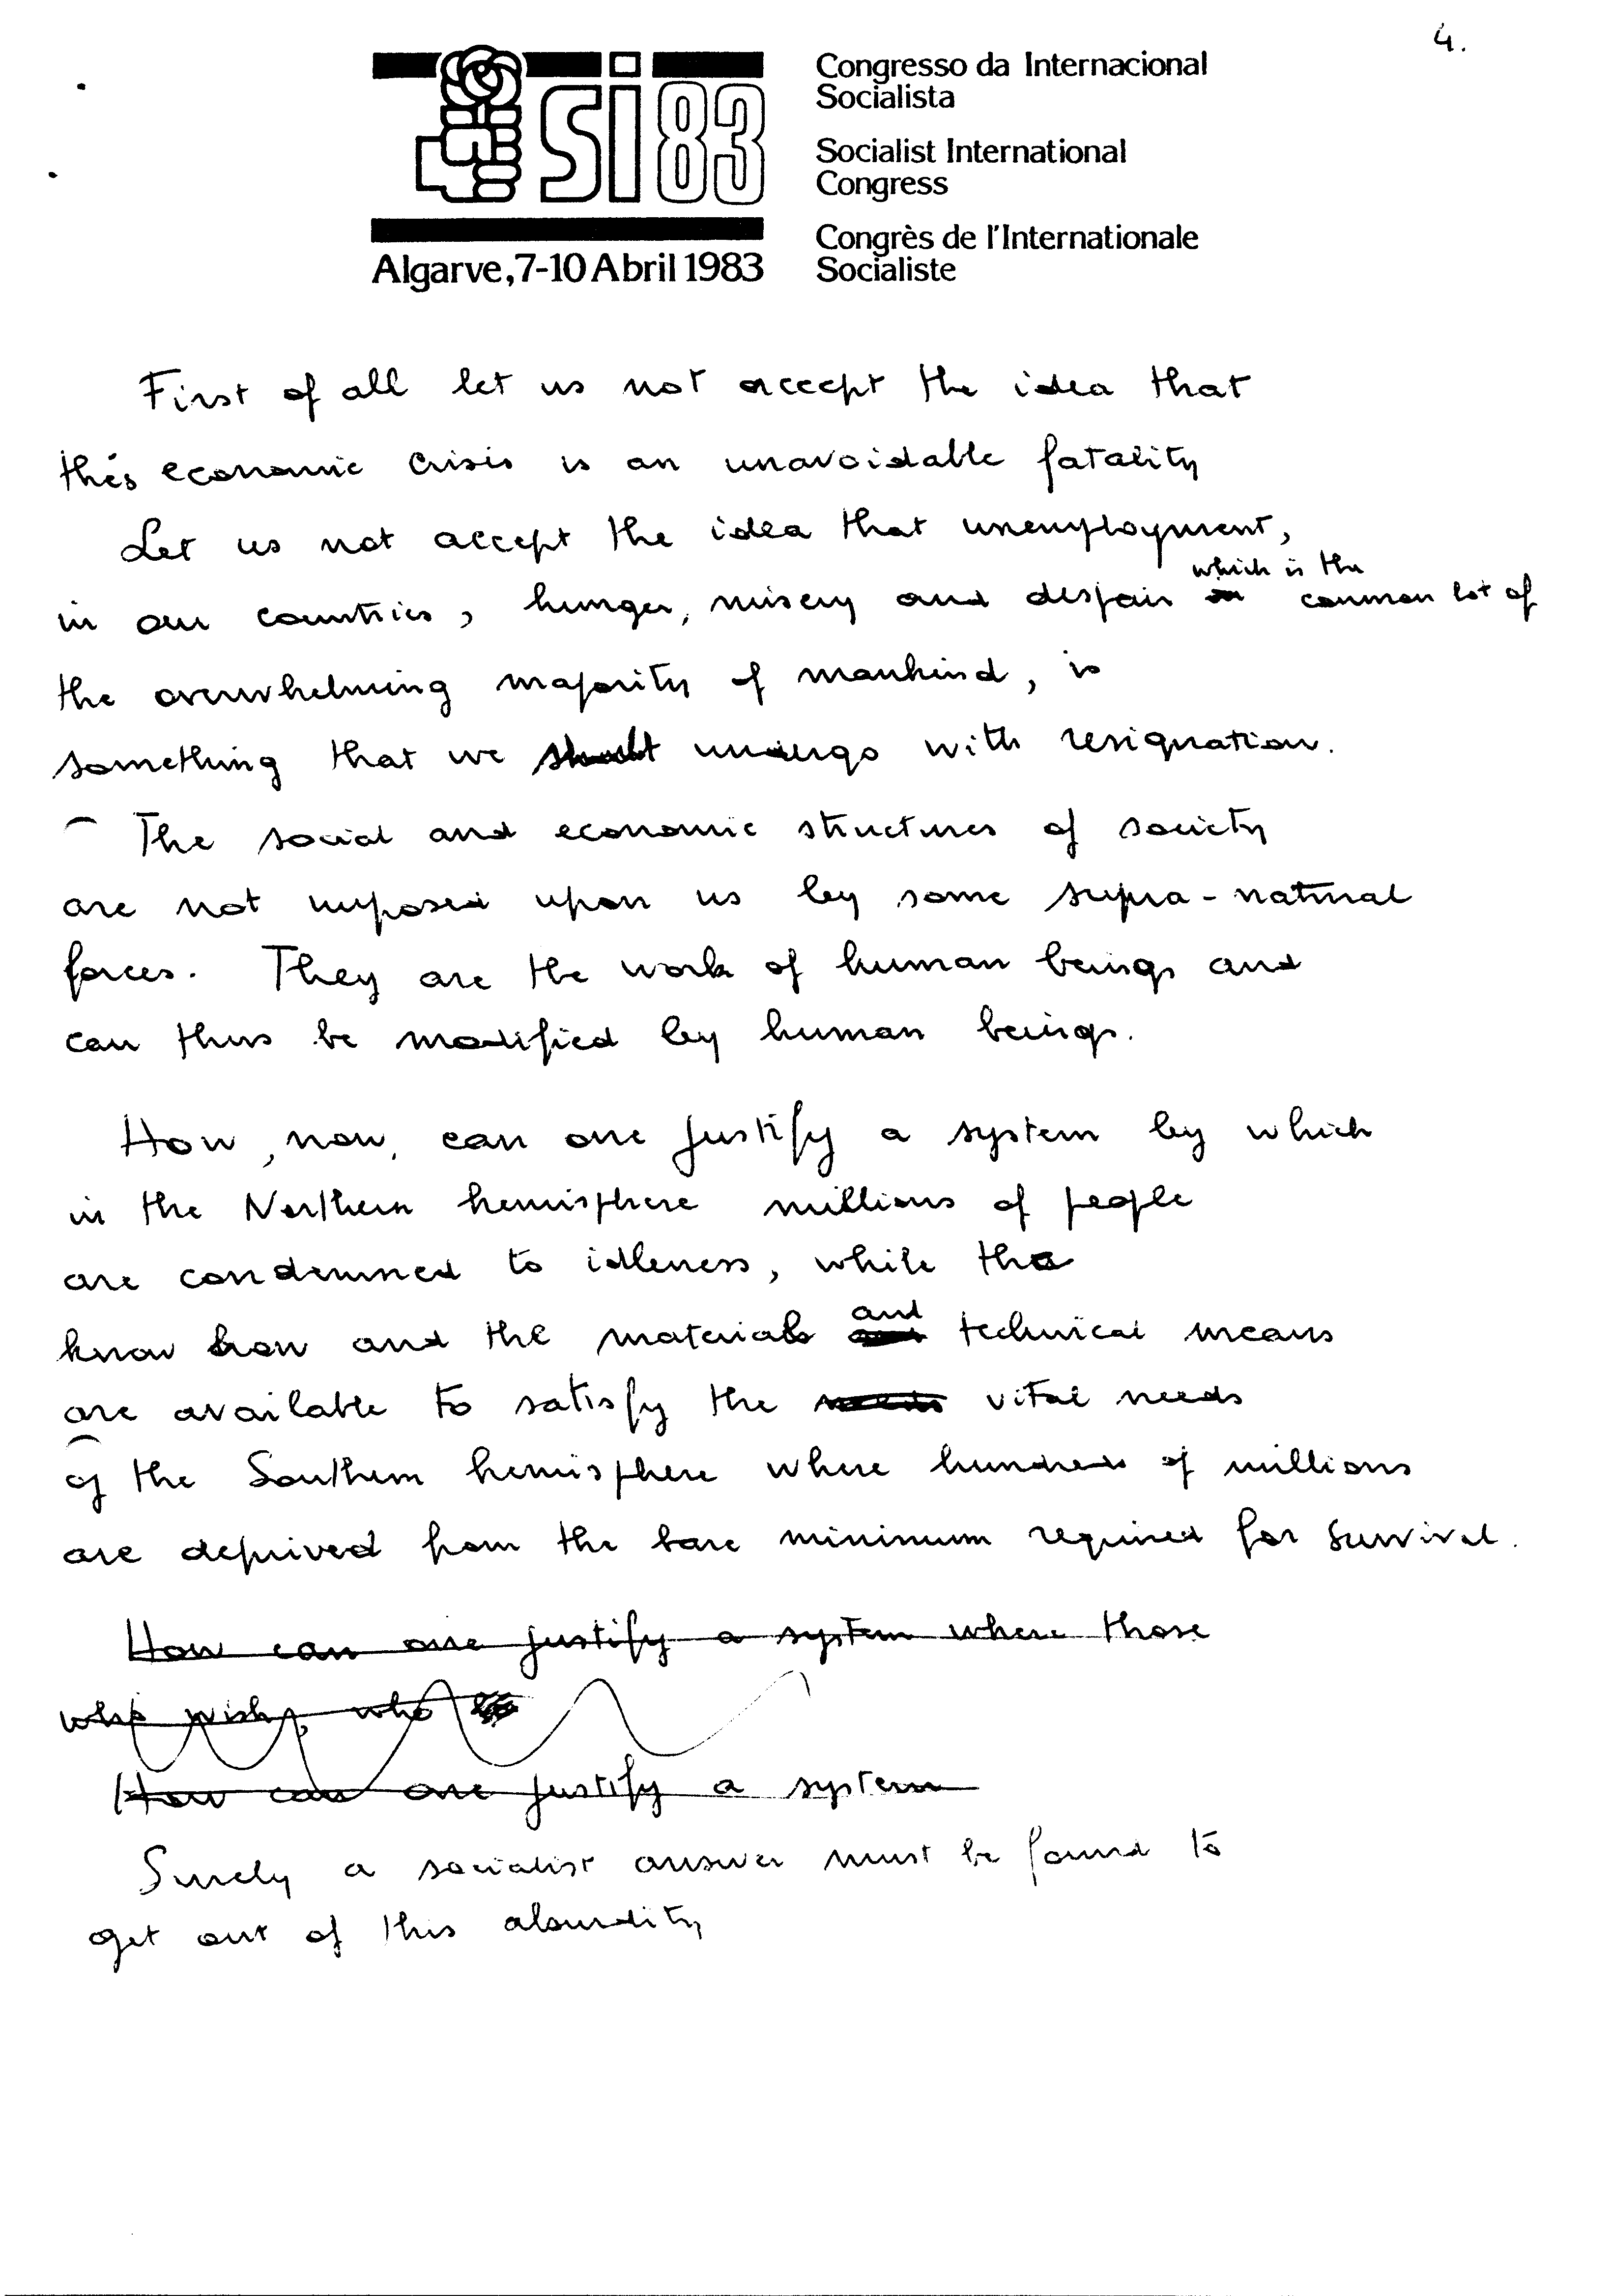 4.
SI 83
Congresso da Internacional
Socialista
Socialist International
Congress
Congrès de l'Internationale
Socialiste
Algarve, 7-10 Abril 1983
First of all let us not accept the idea that
this economic crisis is an unavoidable fatality
Let us not accept the idea that unemployment,
which is the
in our countries, hunger, misery and despair common lot of
the overwhelming majority of mankind, is
something that we undergo with resignation.
The social and economic structures of society
are not imposed upon us by some supra-natural
forces. They are the work of human beings and
can thus be modified by human beings.
How, now, can one justify a system by which
in the Northern hemisphere millions of people
are condemned to idleness, while the
and
know how and the materials technical means
are available to satisfy the vital needs
of the Southern hemisphere where hundreds of millions
are deprived from the bare minimum required for survival.
How can one justify a system where those
who wish, who
How can one justify a system
Surely a socialist answer must be found to
get out of this absurdity